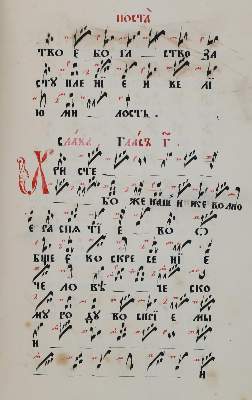 поста̀
тво е бо га ство за
сту пле нї е и ве лї
ю ми лость .
Слава , Гласъ г҃
Х ри сте
бо же нашъ и же волно
е ра спѧ тї е во
ѡбще е во скре се нї е
че ло вѣ че ско
му ро ду во спрї е мы
и
и